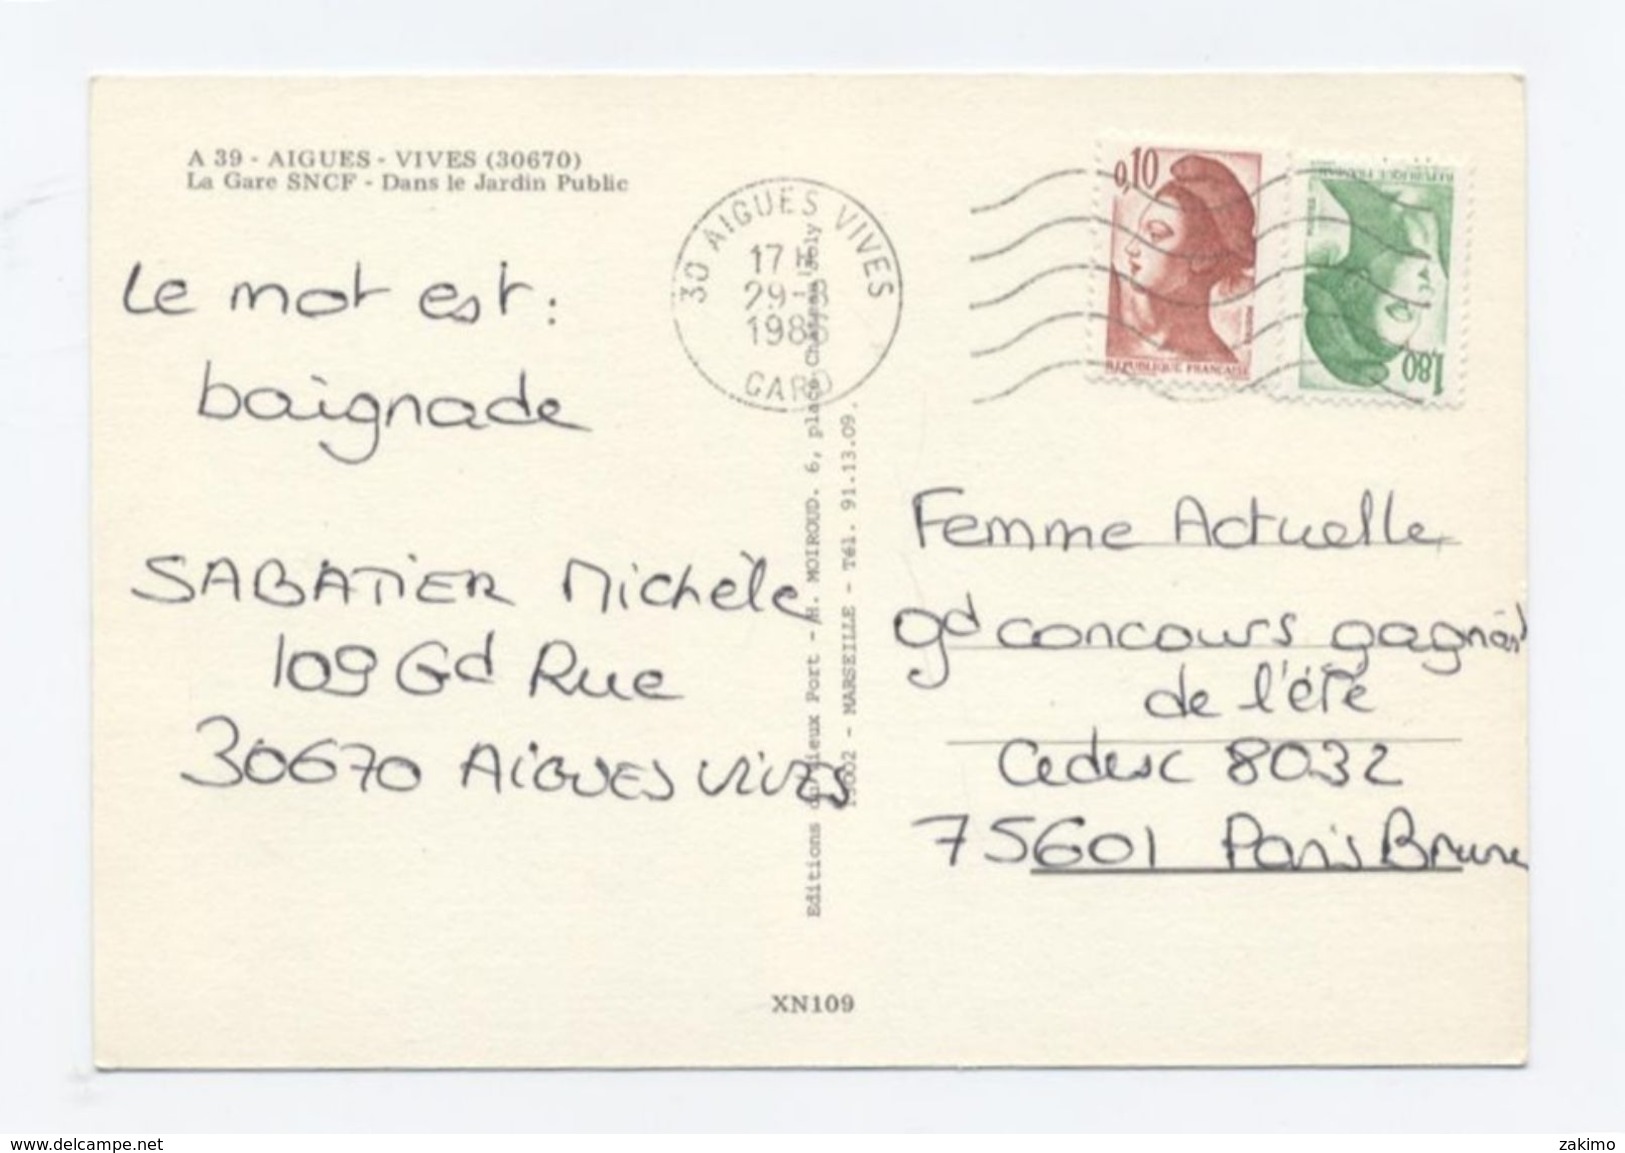 A 39 - AIGUES - VIVES (30670)
La Gare SNCF - Dans le Jardin Public
Le mot est :
baignade
SABATIER Michèle
109 Gd Rue
30670 AIGUES VIVES
30 AIGUES VIVES
17 H
29-8
GARD
0,10
REPUBLIQUE FRANÇAISE
1,80
REPUBLIQUE FRANÇAISE
Editions du Vieux Port - H. MOIROUD. 6, place Château Joly
13002 - MARSEILLE - Tél. 91.13.09.
Femme Actuelle
gd concours gagnant
de l'été
Cedesc 8032
75601 Paris Brune
XN109
www.delcampe.net
zakimo